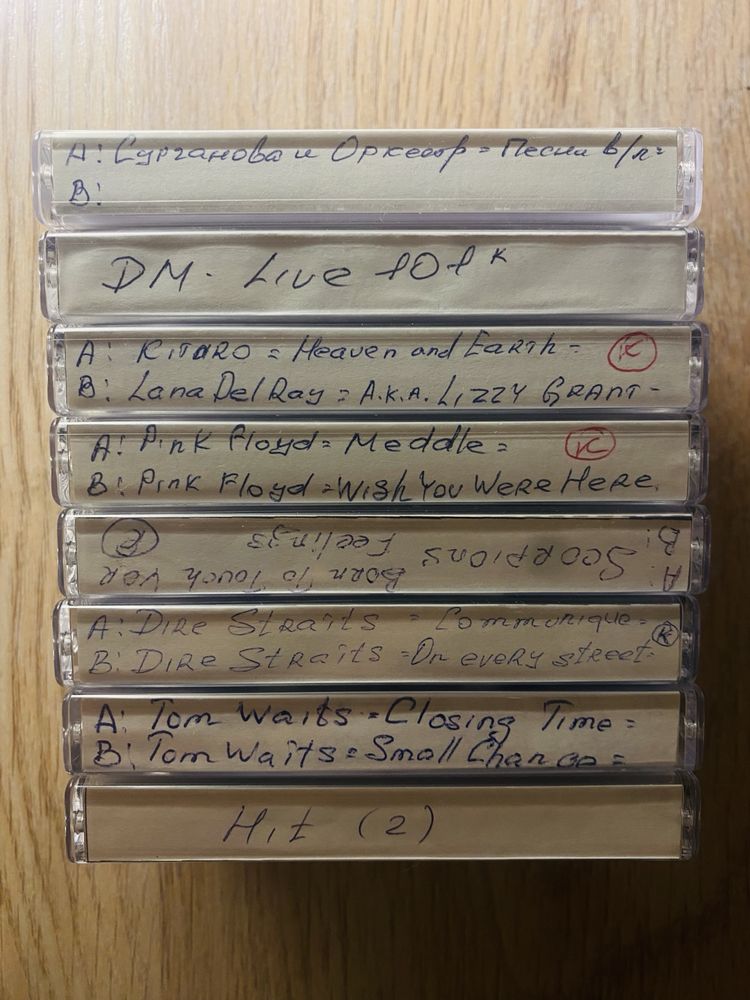 A: Сурганова и Оркестр = Песни в/п =
B:
DM - Live 101 K
A: KITARO = Heaven and Earth = K
B: Lana Del Ray = A.K.A. LIZZY GRANT -
A: Pink Floyd = Meddle = K
B: Pink Floyd = Wish You Were Here.
A: Born To Touch Your
B: SCORPIONS Feelings
A: DIRE Straits = Communique = K
B: DIRE Straits = On every street =
A: Tom Waits = Closing Time =
B: Tom Waits = Small Change =
Hit (2)